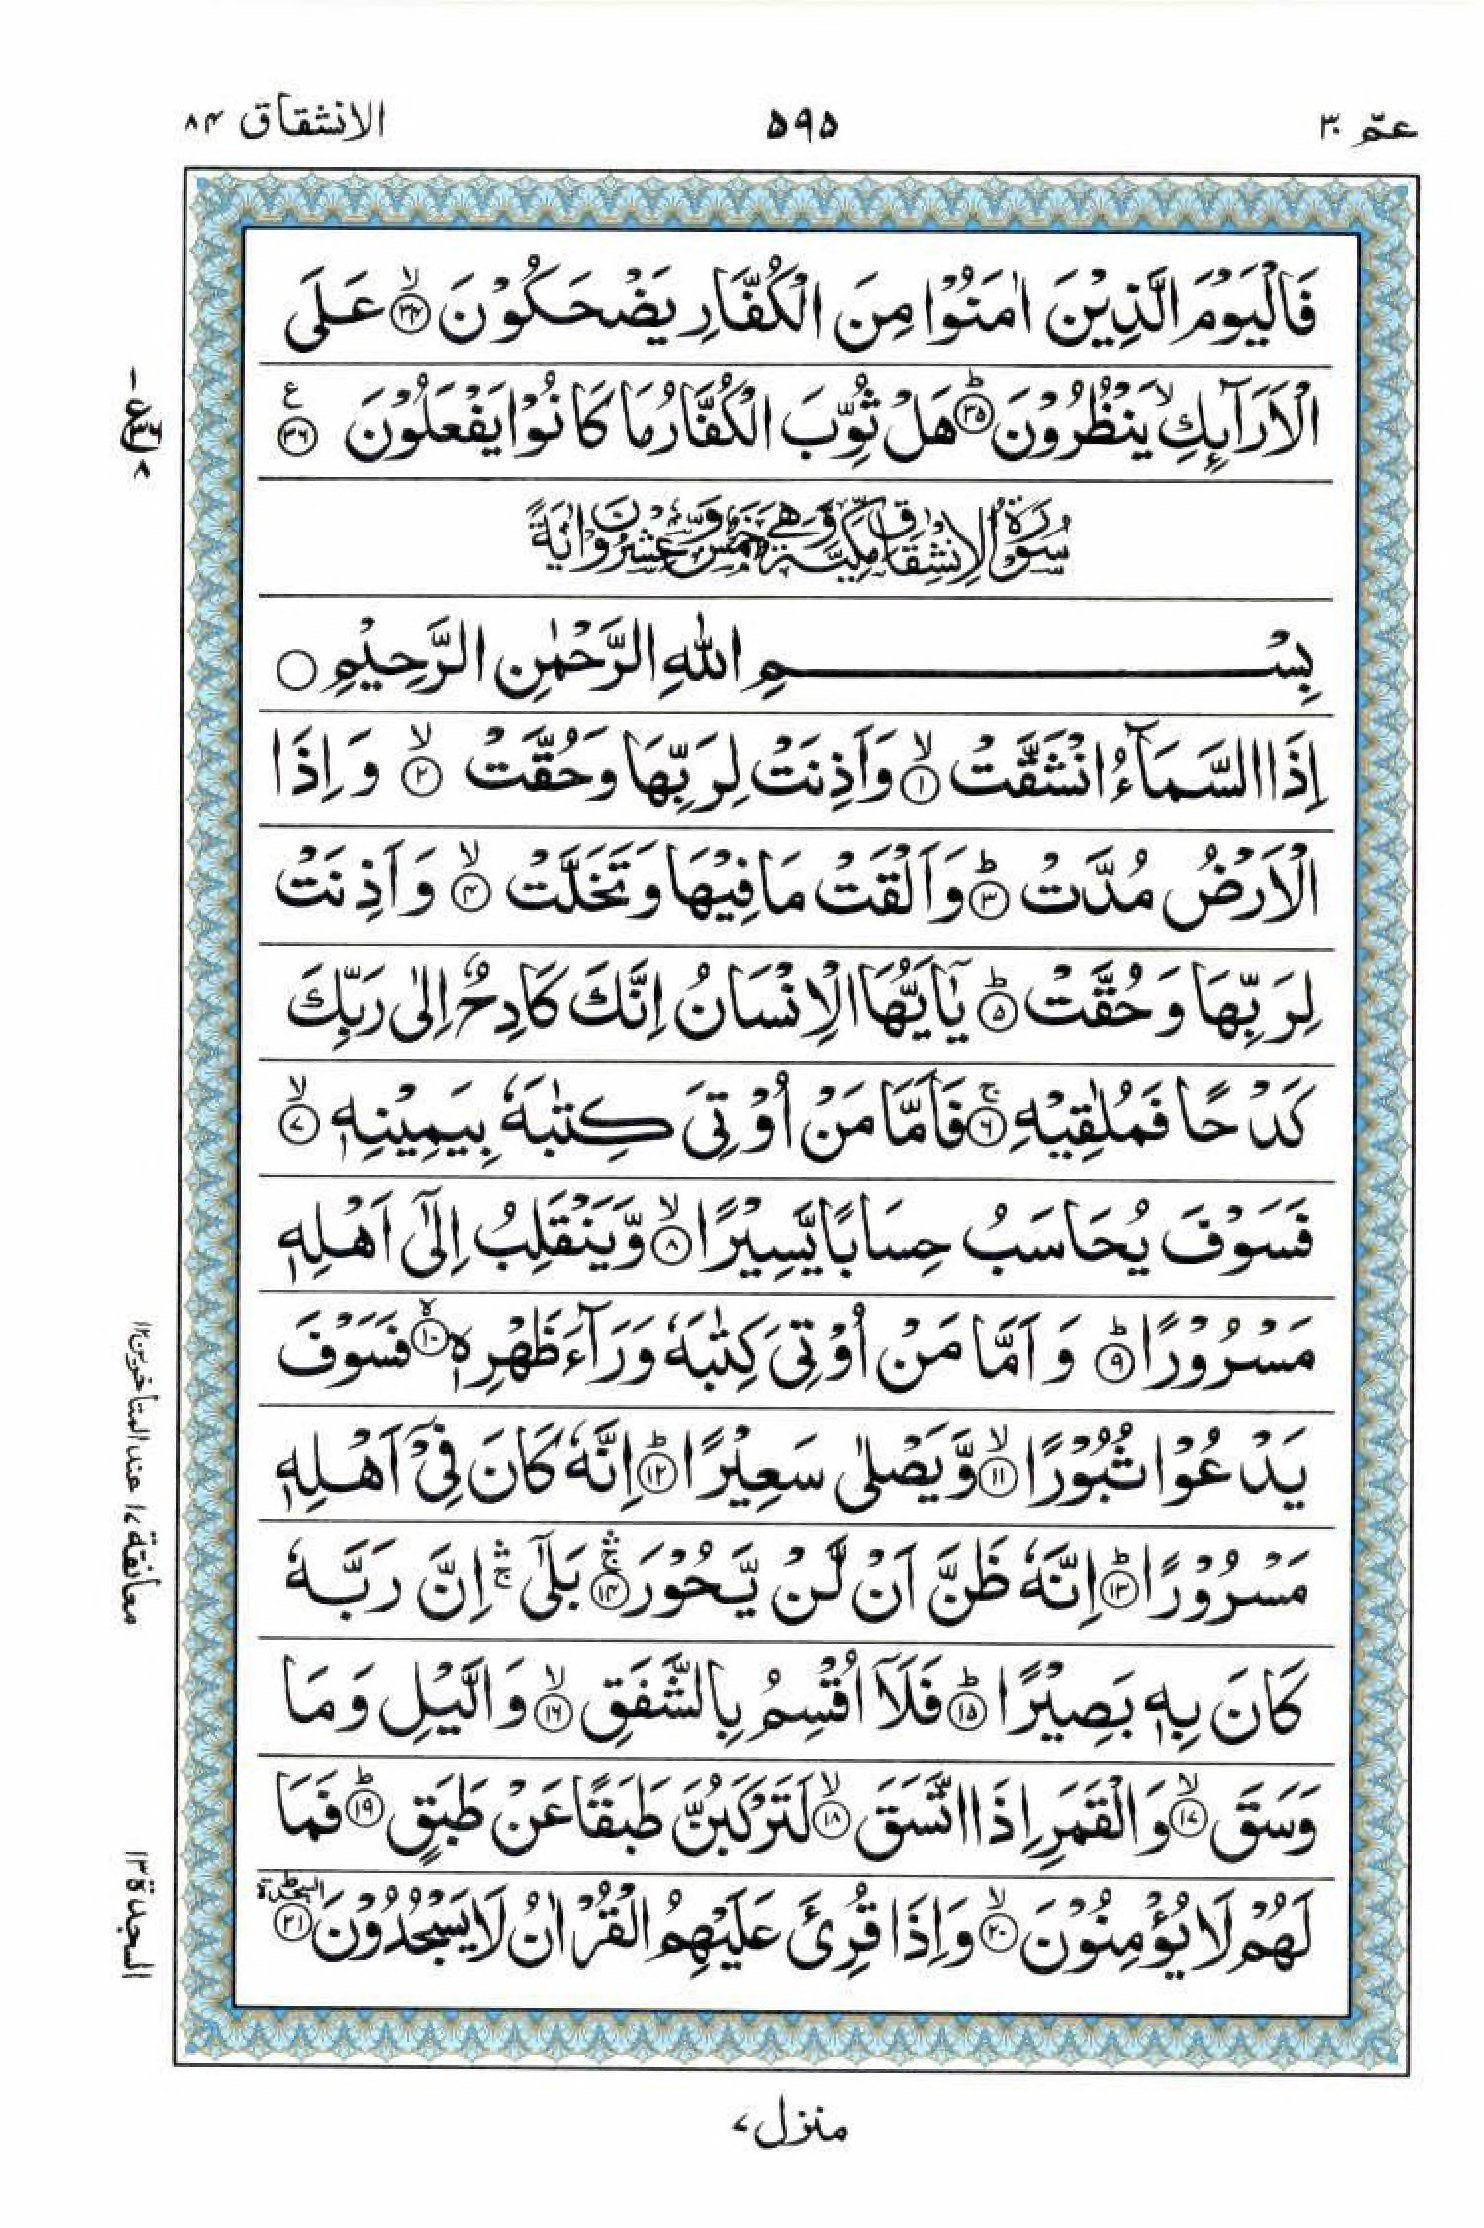 عمّ ٣٠
٥٩٥
الانشقاق ٨٤
فَالْيَوْمَ الَّذِيْنَ اٰمَنُوْا مِنَ الْكُفَّارِ يَضْحَكُوْنَ ۙ﴿٣٤﴾ عَلَى
الْاَرَآىِٕكِ ۙ يَنْظُرُوْنَ ؕ﴿٣٥﴾ هَلْ ثُوِّبَ الْكُفَّارُ مَا كَانُوْا يَفْعَلُوْنَ ﴿٣٦﴾ ع
سُوْرَةُ الْاِنْشِقَاقِ مَكِّيَّةٌ وَّهِيَ خَمْسٌ وَّعِشْرُوْنَ اٰيَةً
بِسْمِ اللّٰهِ الرَّحْمٰنِ الرَّحِيْمِ
اِذَا السَّمَآءُ انْشَقَّتْ ۙ﴿١﴾ وَاَذِنَتْ لِرَبِّهَا وَحُقَّتْ ۙ﴿٢﴾ وَاِذَا
الْاَرْضُ مُدَّتْ ؕ﴿٣﴾ وَاَلْقَتْ مَا فِيْهَا وَتَخَلَّتْ ۙ﴿٤﴾ وَاَذِنَتْ
لِرَبِّهَا وَحُقَّتْ ؕ﴿٥﴾ يٰۤاَيُّهَا الْاِنْسَانُ اِنَّكَ كَادِحٌ اِلٰى رَبِّكَ
كَدْحًا فَمُلٰقِيْهِ ۚ﴿٦﴾ فَاَمَّا مَنْ اُوْتِيَ كِتٰبَهٗ بِيَمِيْنِهٖ ۙ﴿٧﴾
فَسَوْفَ يُحَاسَبُ حِسَابًا يَّسِيْرًا ۙ﴿٨﴾ وَّيَنْقَلِبُ اِلٰٓى اَهْلِهٖ
مَسْرُوْرًا ؕ﴿٩﴾ وَاَمَّا مَنْ اُوْتِيَ كِتٰبَهٗ وَرَآءَ ظَهْرِهٖ ۙ﴿١٠﴾ فَسَوْفَ
يَدْعُوْا ثُبُوْرًا ۙ﴿١١﴾ وَّيَصْلٰى سَعِيْرًا ؕ﴿١٢﴾ اِنَّهٗ كَانَ فِيْۤ اَهْلِهٖ
مَسْرُوْرًا ؕ﴿١٣﴾ اِنَّهٗ ظَنَّ اَنْ لَّنْ يَّحُوْرَ ۛۚ﴿١٤﴾ بَلٰٓى ۛۚ اِنَّ رَبَّهٗ
كَانَ بِهٖ بَصِيْرًا ؕ﴿١٥﴾ فَلَاۤ اُقْسِمُ بِالشَّفَقِ ۙ﴿١٦﴾ وَالَّيْلِ وَمَا
وَسَقَ ۙ﴿١٧﴾ وَالْقَمَرِ اِذَا اتَّسَقَ ۙ﴿١٨﴾ لَتَرْكَبُنَّ طَبَقًا عَنْ طَبَقٍ ؕ﴿١٩﴾ فَمَا
لَهُمْ لَا يُؤْمِنُوْنَ ۙ﴿٢٠﴾ وَاِذَا قُرِئَ عَلَيْهِمُ الْقُرْاٰنُ لَا يَسْجُدُوْنَ ؕ﴿٢١﴾ السجدة
معانقة ١٨ عند المتأخرين ١٢
السجدة ١٣
منزل ٧